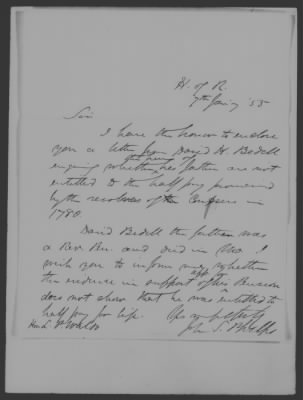 H. of R.
7th Jany '55
Sir
I have the honor to enclose
you a letter from David H. Bedell
enquiring whether the heirs of his father are not
entitled to the half pay promised
by the resolves of the Congress in
1780.
David Bedell the father was
a Rev. Pen. and died in Mo. I
wish you to inform me whether
the evidence in support of his app for Pension
does not show that he was entitled to
half pay for life. Respectfully
John S. Phelps
Hon L. P. Waldo